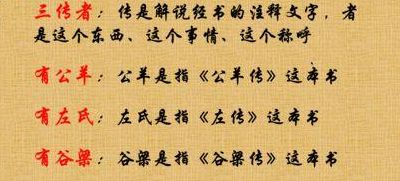 三传者：传是解说经书的注释文字，者
是这个东西、这个事情、这个称呼
有公羊：公羊是指《公羊传》这本书
有左氏：左氏是指《左传》这本书
有谷梁：谷梁是指《谷梁传》这本书